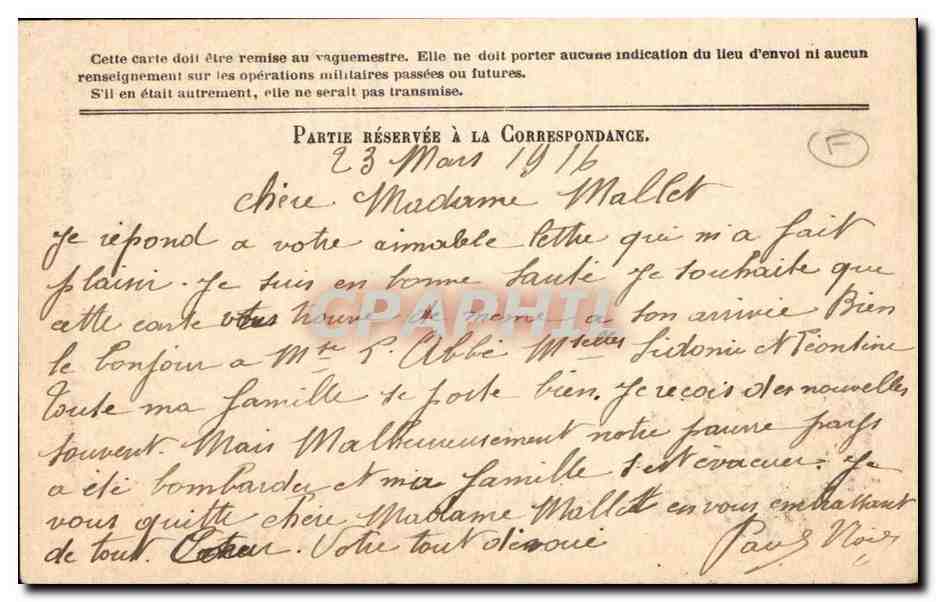 Cette carte doit être remise au vaguemestre. Elle ne doit porter aucune indication du lieu d'envoi ni aucun
renseignement sur les opérations militaires passées ou futures.
S'il en était autrement, elle ne serait pas transmise.
PARTIE RÉSERVÉE À LA CORRESPONDANCE.
F
23 Mars 1916
chère Madame Mallet
Je répond a votre aimable lettre qui m'a fait
plaisir. Je suis en bonne santé Je souhaite que
cette carte vous trouve de même a son arrivée Bien
le bonjour a Mr L'Abbé Mselles Sidonie et Léontine
Toute ma famille se porte bien. Je reçois des nouvelles
souvent. Mais Malheureusement notre pauvre pays
a été bombarder et ma famille s'est évacuer. Je
vous quitte chère Madame Mallet en vous embrassant
de tout Cœur. Votre tout dévoué Paul
CPAPHIL